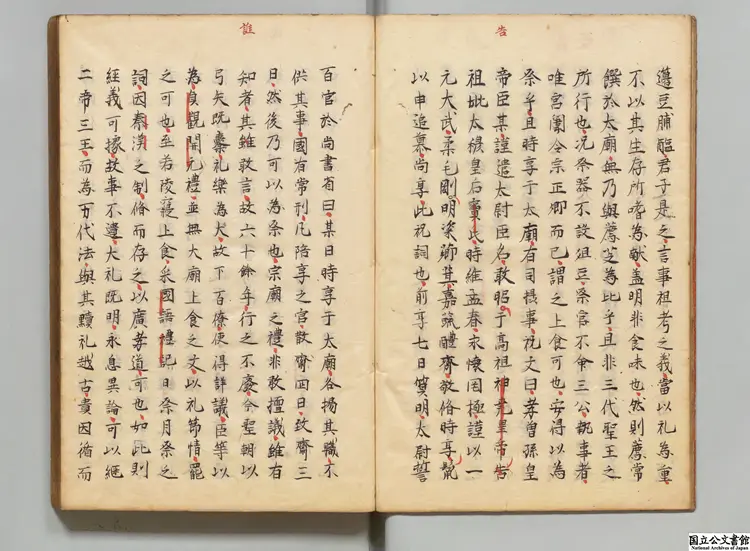 告
籩豆脯醢君子是之言事祖考之義當以礼為重
不以其生存所嗜為献盖明非食味也然則薦常
饌於太廟無乃與薦芝為比乎且非三代聖王之
所行也况祭器不設俎豆祭官不命三公執事者
唯宮闈令宗正卿而已謂之上食可也安得以為
祭乎且時享于太廟有司攝事祝文曰孝曾孫皇
帝臣某謹遣太尉臣名敢昭于高祖神堯皇帝告
祖妣太穆皇后竇氏時維孟春永懷因極謹以一
元大武柔毛剛明粢薌萁嘉蔬醴齊敬脩時享鬣
以申追慕尚享此祝詞也前享七日質明太尉誓
誰
百官於尚書省曰某日時享于太廟各揚其職不
供其事國有常刑凡陪享之官散齊四日致齊三
日然後乃可以為祭也宗廟之禮非敢擅議雖有
知者其雖敢言故六十餘年行之不廢今聖朝以
弓矢既櫜礼樂為大故下百僚使得詳議臣等以
為貞觀開元禮並無大廟上食之文以礼節情罷
之可也至若陵寢上食采國語禮記日祭月祭之
詞因秦漢之制脩而存之以廣孝道可也如此則
經義可據故事不遺大礼既明永息異論可以継
二帝三王而為万代法與其黷礼越古貴因循而
国立公文書館
National Archives of Japan